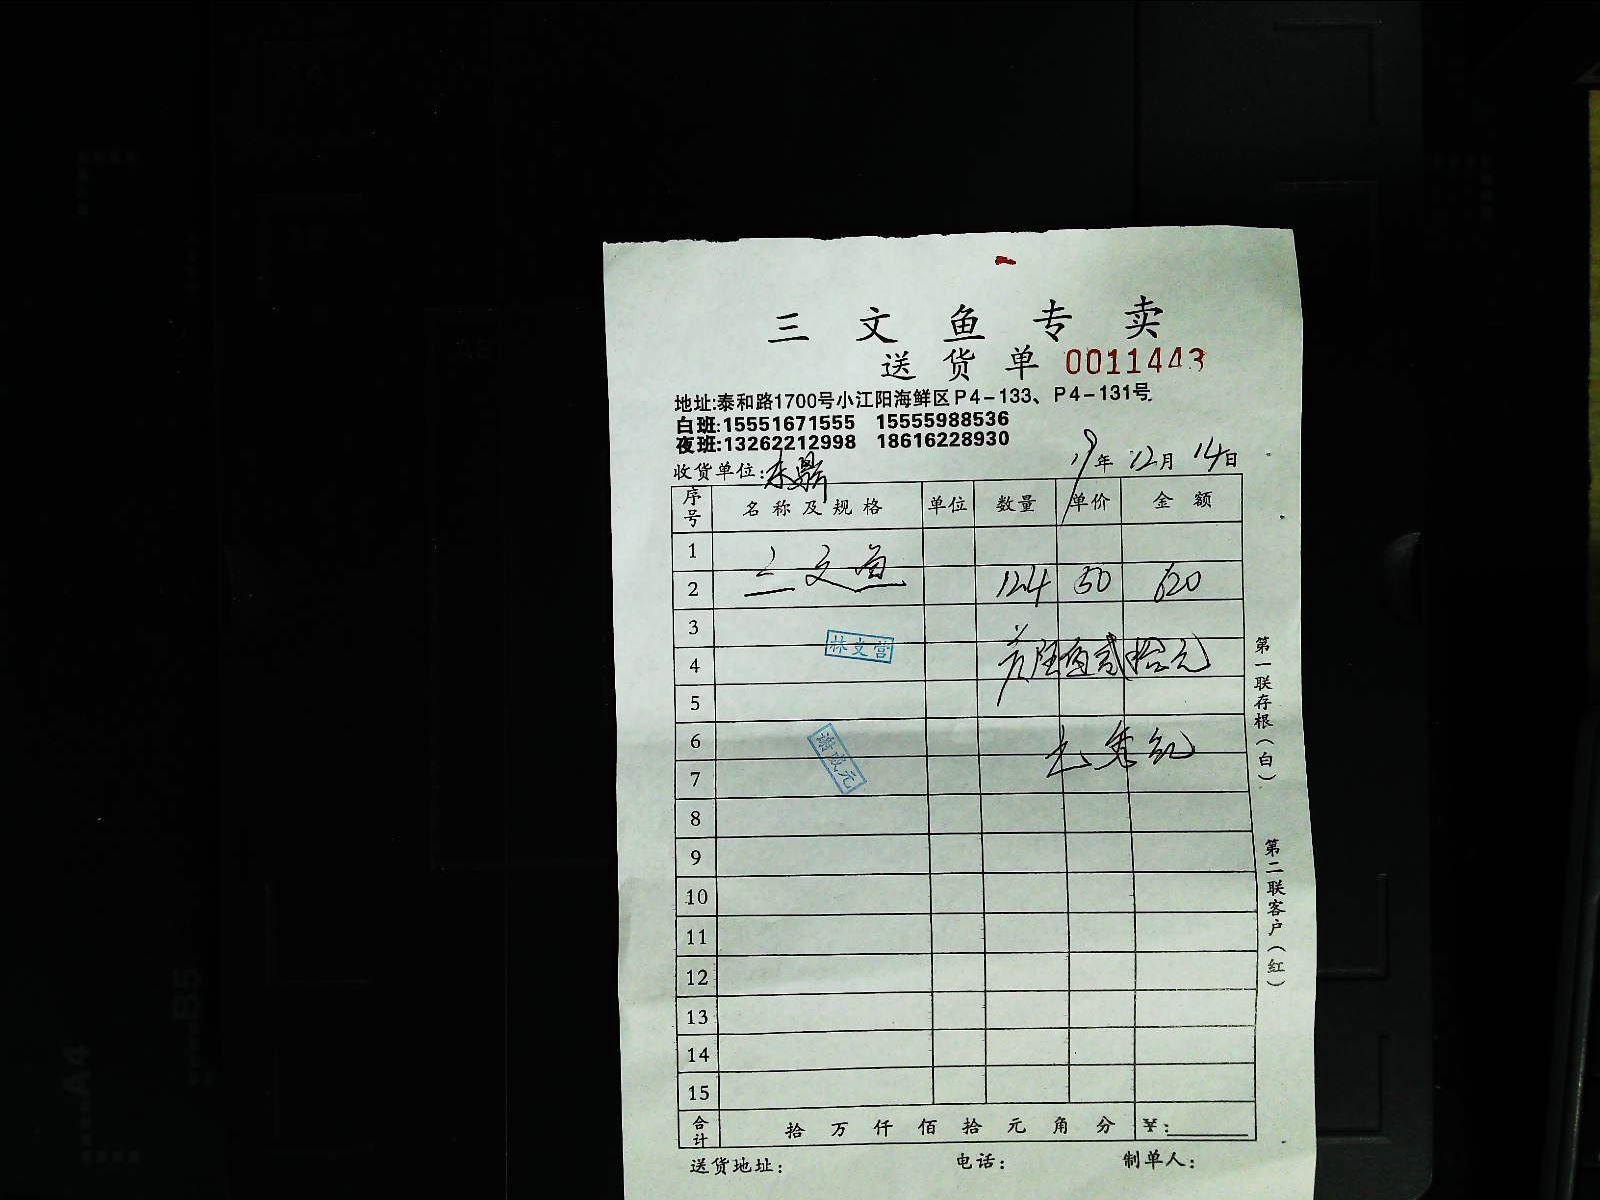 三文鱼专卖
送货单 0011443
地址:泰和路1700号小江阳海鲜区P4-133、P4-131号
白班:15551671555 15555988536
夜班:13262212998 18616228930
收货单位:东鼎 19年12月14日
序号 名称及规格 单位 数量 单价 金额
1
三文鱼
2 124 50 620
3
林文营
4 陆佰贰拾元
5
6
谢成元
7
8
9
10
11
12
13
14
15
合计 拾万仟佰拾元角分 ¥:
送货地址: 电话: 制单人:
第一联存根(白)
第二联客户(红)